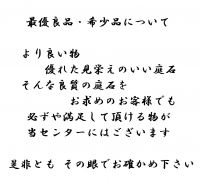 最優良品・希少品について
より良い物
優れた見栄えのいい庭石
そんな良質の庭石を
お求めのお客様でも
必ずや満足して頂ける物が
当センターにはございます
是非とも その眼でお確かめ下さい